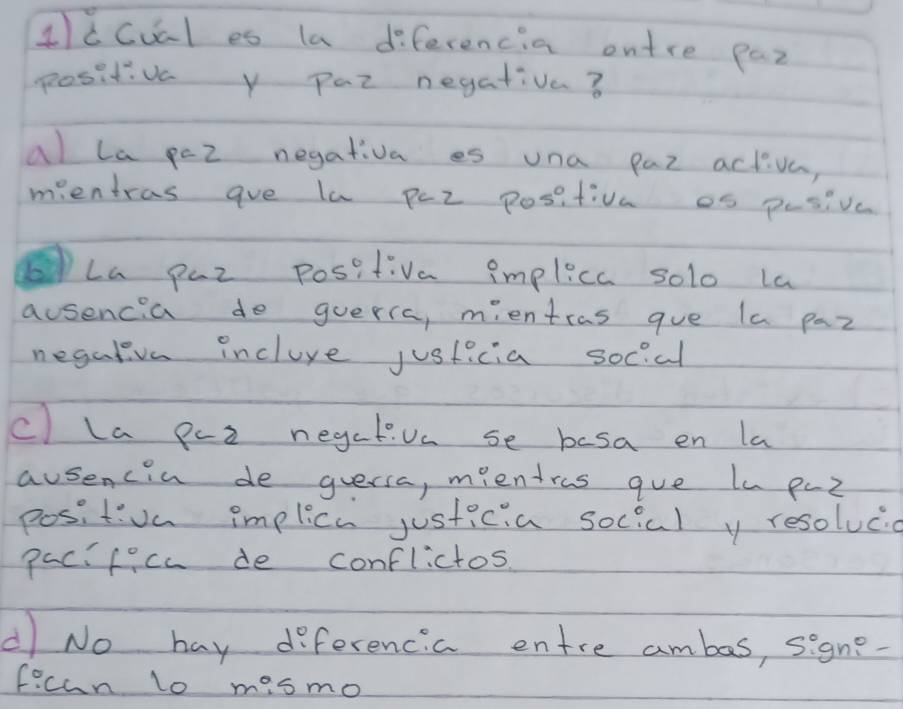 1) ¿Cuál es la diferencia entre paz
positiva y paz negativa?
a) La paz negativa es una paz activa,
mientras que la paz positiva es pasiva
b) La paz positiva implica solo la
ausencia de guerra, mientras que la paz
negativa incluye justicia social
c) La paz negativa se basa en la
ausencia de guerra, mientras que la paz
positiva implica justicia social y resolucio
pacífica de conflictos.
d) No hay diferencia entre ambas, signi-
fican lo mismo